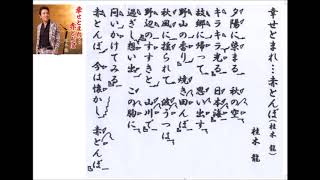 幸せとまれ…赤とんぼ(桂木 龍)
桂木 龍
夕陽に染まる 秋の空
キラキラ光る 日本海
故郷に帰って 思い出す
野山の香り 焼き田んぼ
秋風に揺られて 波うつは
野辺のすすきと 山川で
過ぎし想い出 この胸に
問いかけてみる
赤とんぼ 今は懐かし 赤とんぼ
幸せとまれ
赤とんぼ